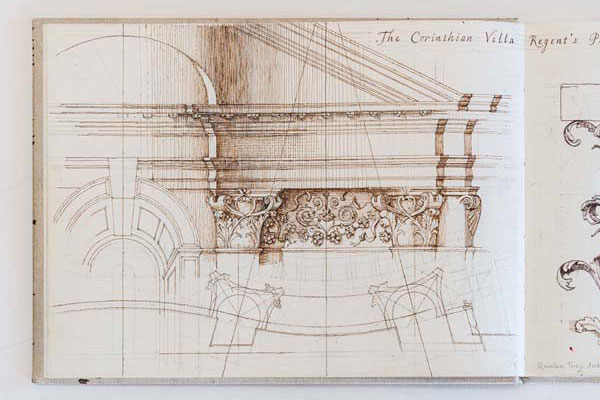 The Corinthian Villa Regent's
Quinlan Terry